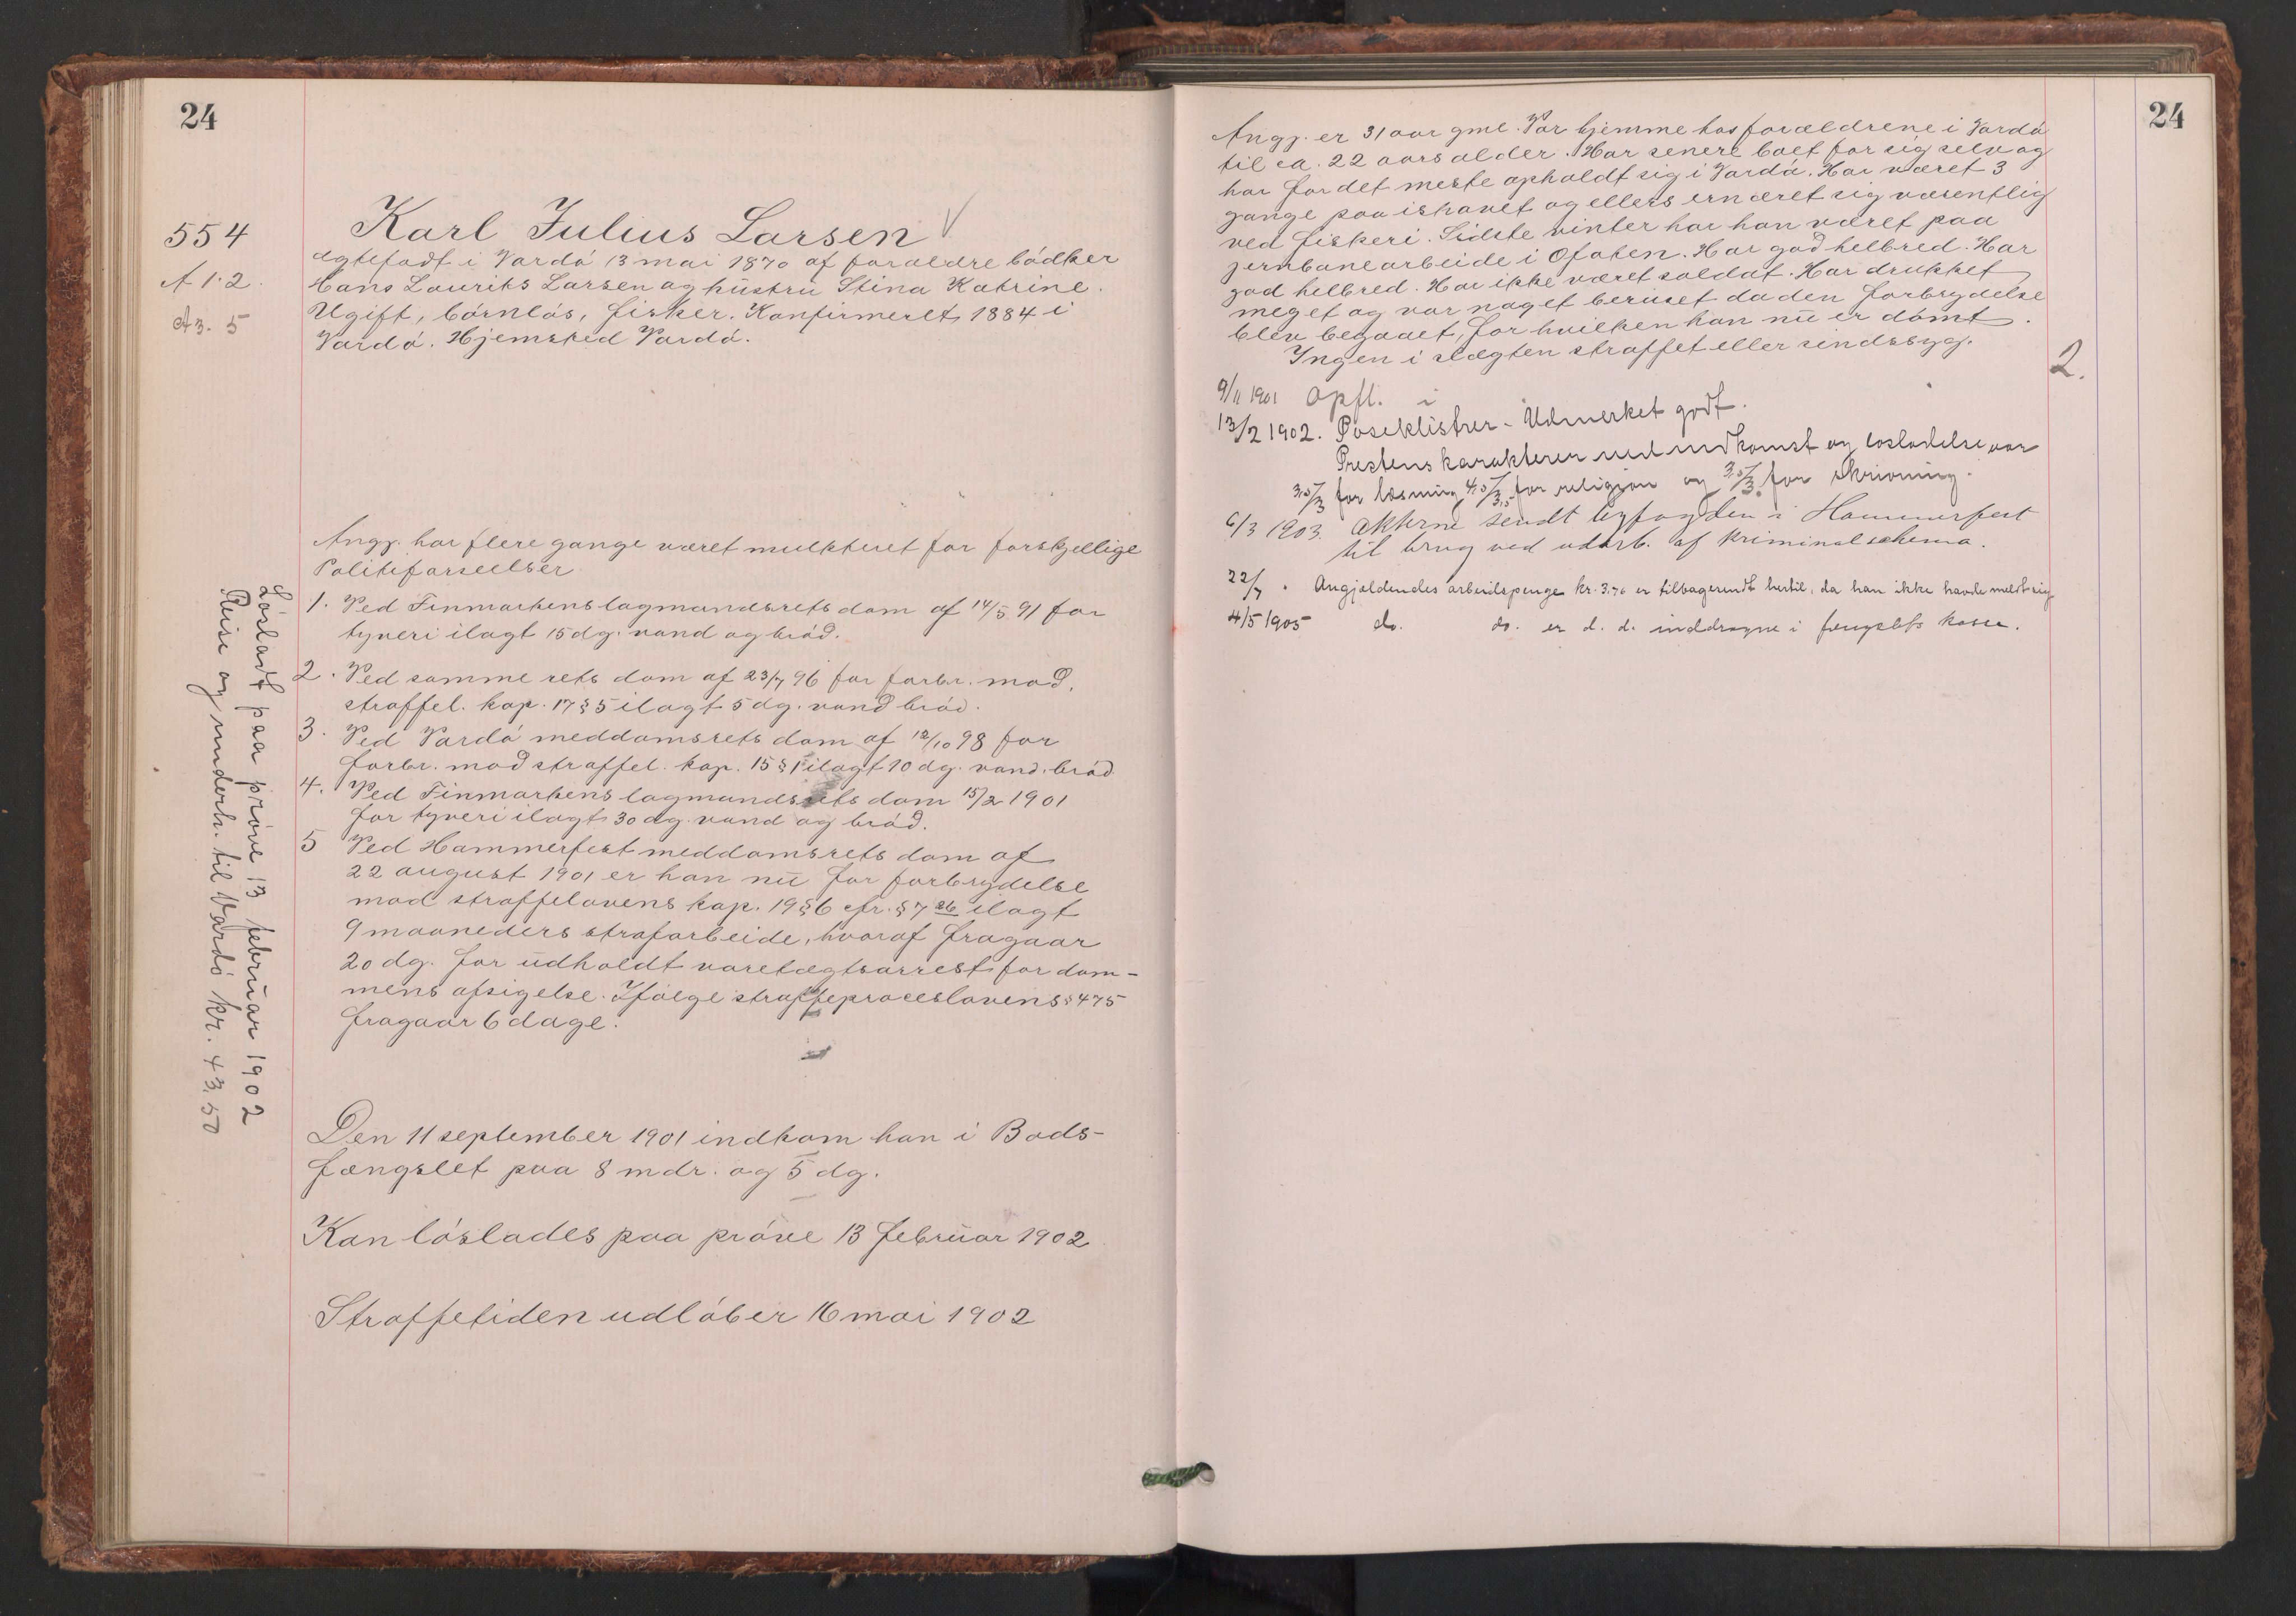 24
554
A 1.2.
A 3. 5
Karl Julius Larsen V
ægtefødt i Vardø 13 mai 1870 af forældre bødker
Hans Laurits Larsen og hustru Stina Katrine.
Ugift, børnløs, fisker. Konfirmeret 1884 i
Vardø. Hjemsted Vardø.
Angj. har flere gange været mulkteret for forskjellige
Politiforseelser
1. Ved Finmarkens lagmandsrets dom af 14/5 91 for
tyveri ilagt 15 dg. vand og brød.
2. Ved samme rets dom af 23/7 96 for forbr. mod.
straffel. kap. 17 § 5 ilagt 5 dg. vand brød.
3. Ved Vardø meddomsrets dom af 12/10 98 for
forbr. mod straffel. kap. 15 § 1 ilagt 10 dg. vand. brød
4. Ved Finmarkens lagmandsrets dom 15/2 1901
for tyveri ilagt 30 dg. vand og brød.
5 Ved Hammerfest meddomsrets dom af
22 august 1901 er han nu for forbrydelse
mod straffelovens kap. 19 § 6 cfr. § 7 ilagt
9 maaneders strafarbeide, hvoraf fragaar
20 dg. for udholdt varetægtsarrest for dom-
mens afsigelse. Ifølge straffeproceslovens § 475
fragaar 6 dage.
Den 11 september 1901 indkom han i Bods-
fængslet paa 8 mdr. og 5 dg.
Kan løslades paa prøve 13 februar 1902
Straffetiden udløber 16 mai 1902
Løsladt paa prøve 13 februar 1902
Reise og underh. til Vardø kr. 43,50
24
Angj. er 31 aar gml. Var hjemme hos forældrene i Vardø
til ca. 22 aars alder. Har senere boet for sig selv og
har for det meste opholdt sig i Vardø. Har været 3
gange paa ishavet og ellers ernæret sig væsentlig
ved fiskeri. Sidste vinter har han været paa
jernbanearbeide i Ofoten. Har god helbred. Har
god helbred. Har ikke været soldat. Har drukket
meget og var noget beruset da den forbrydelse
blev begaaet, for hvilken han nu er dømt.
Ingen i slægten straffet eller sindssyg.
2.
9/11 1901 Opfl. i
13/2 1902. Poseklistrer - Udmerket godt.
Prestens karakterer ved indkomst og løsladelse var
3,5/3 for læsning 4,5/3,5 for religion og 3,5/3 for skrivning.
6/3 1903. Akterne sendt byfogden i Hammerfest
til brug ved udarb. af kriminalschema.
22/7 " Angjældendes arbeidspenge kr. 3.76 er tilbagesendt hertil, da han ikke havde meldt sig
4/5 1905 do. do. er d. d. inddragne i fængslets kasse.